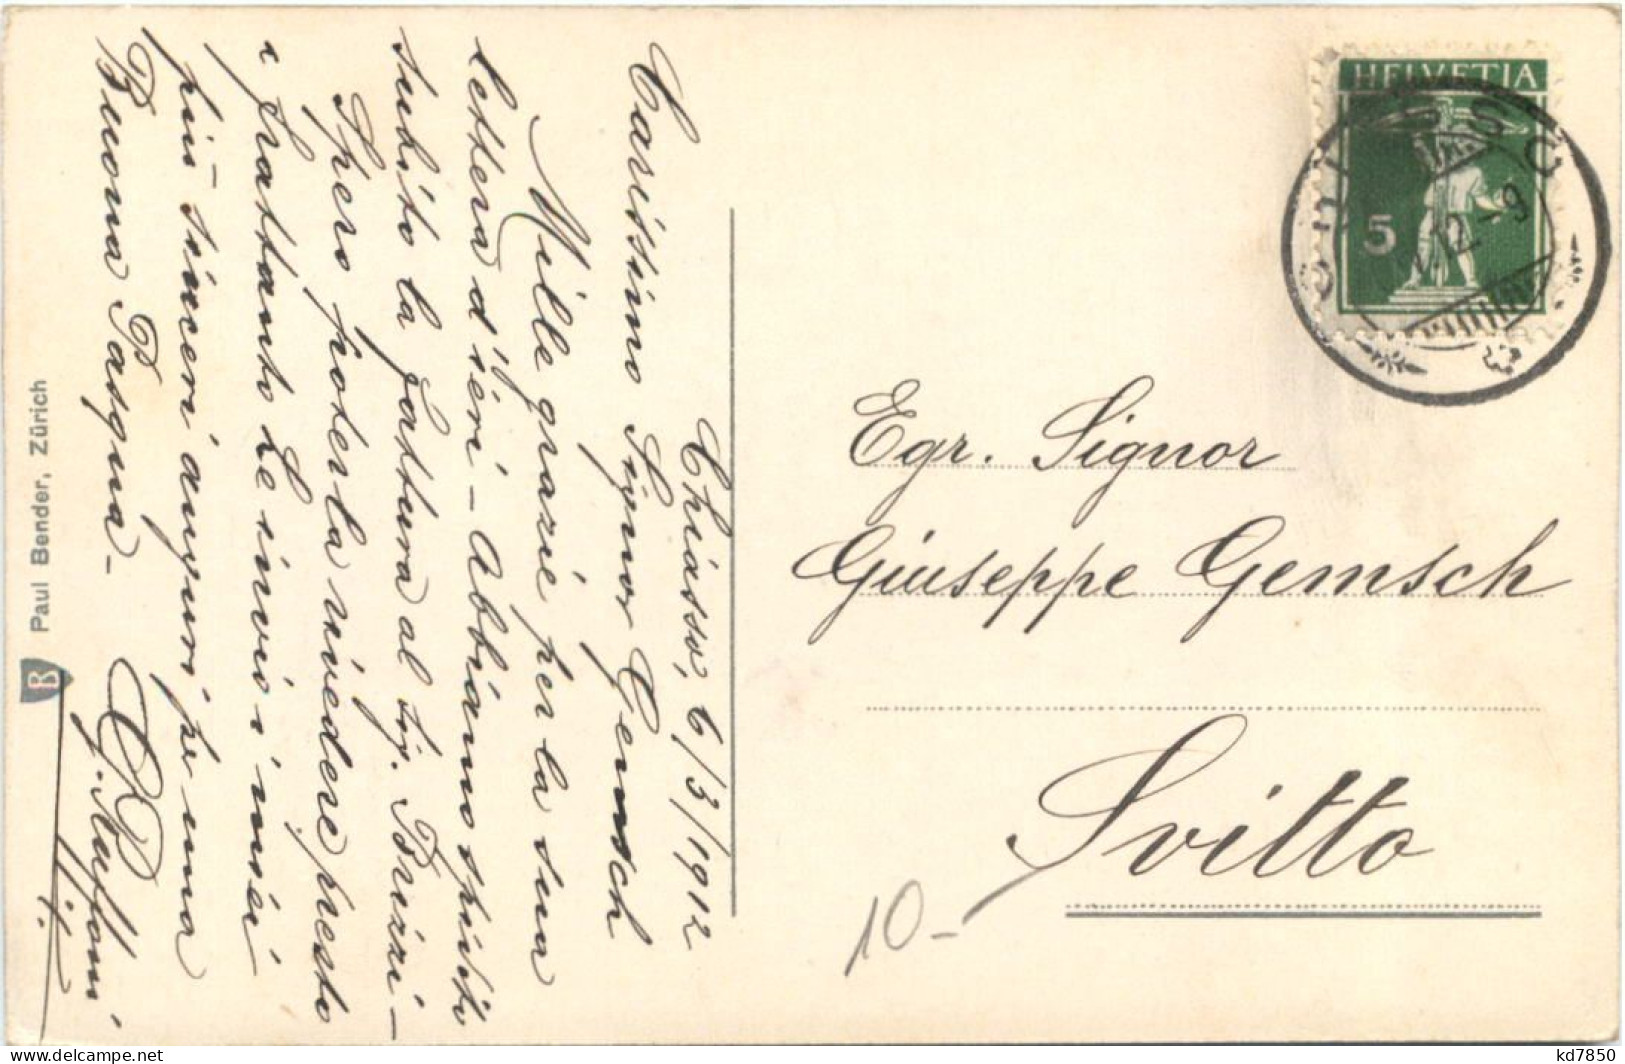 Chiasso, 6/3/1912
Carissimo Signor Gemsch
Mille grazie per la sua
lettera d'ieri - Abbiamo spedito
subito la fattura al Sig. Brizzi -
Spero poterla rivedere presto
e frattanto Le invio i miei
più sinceri auguri per una
Buona Pasqua -
Paul Bender, Zürich
B
HELVETIA
5
CHIASSO
12 - 9
Egr. Signor
Giuseppe Gemsch
Svitto
10 -
kd7850